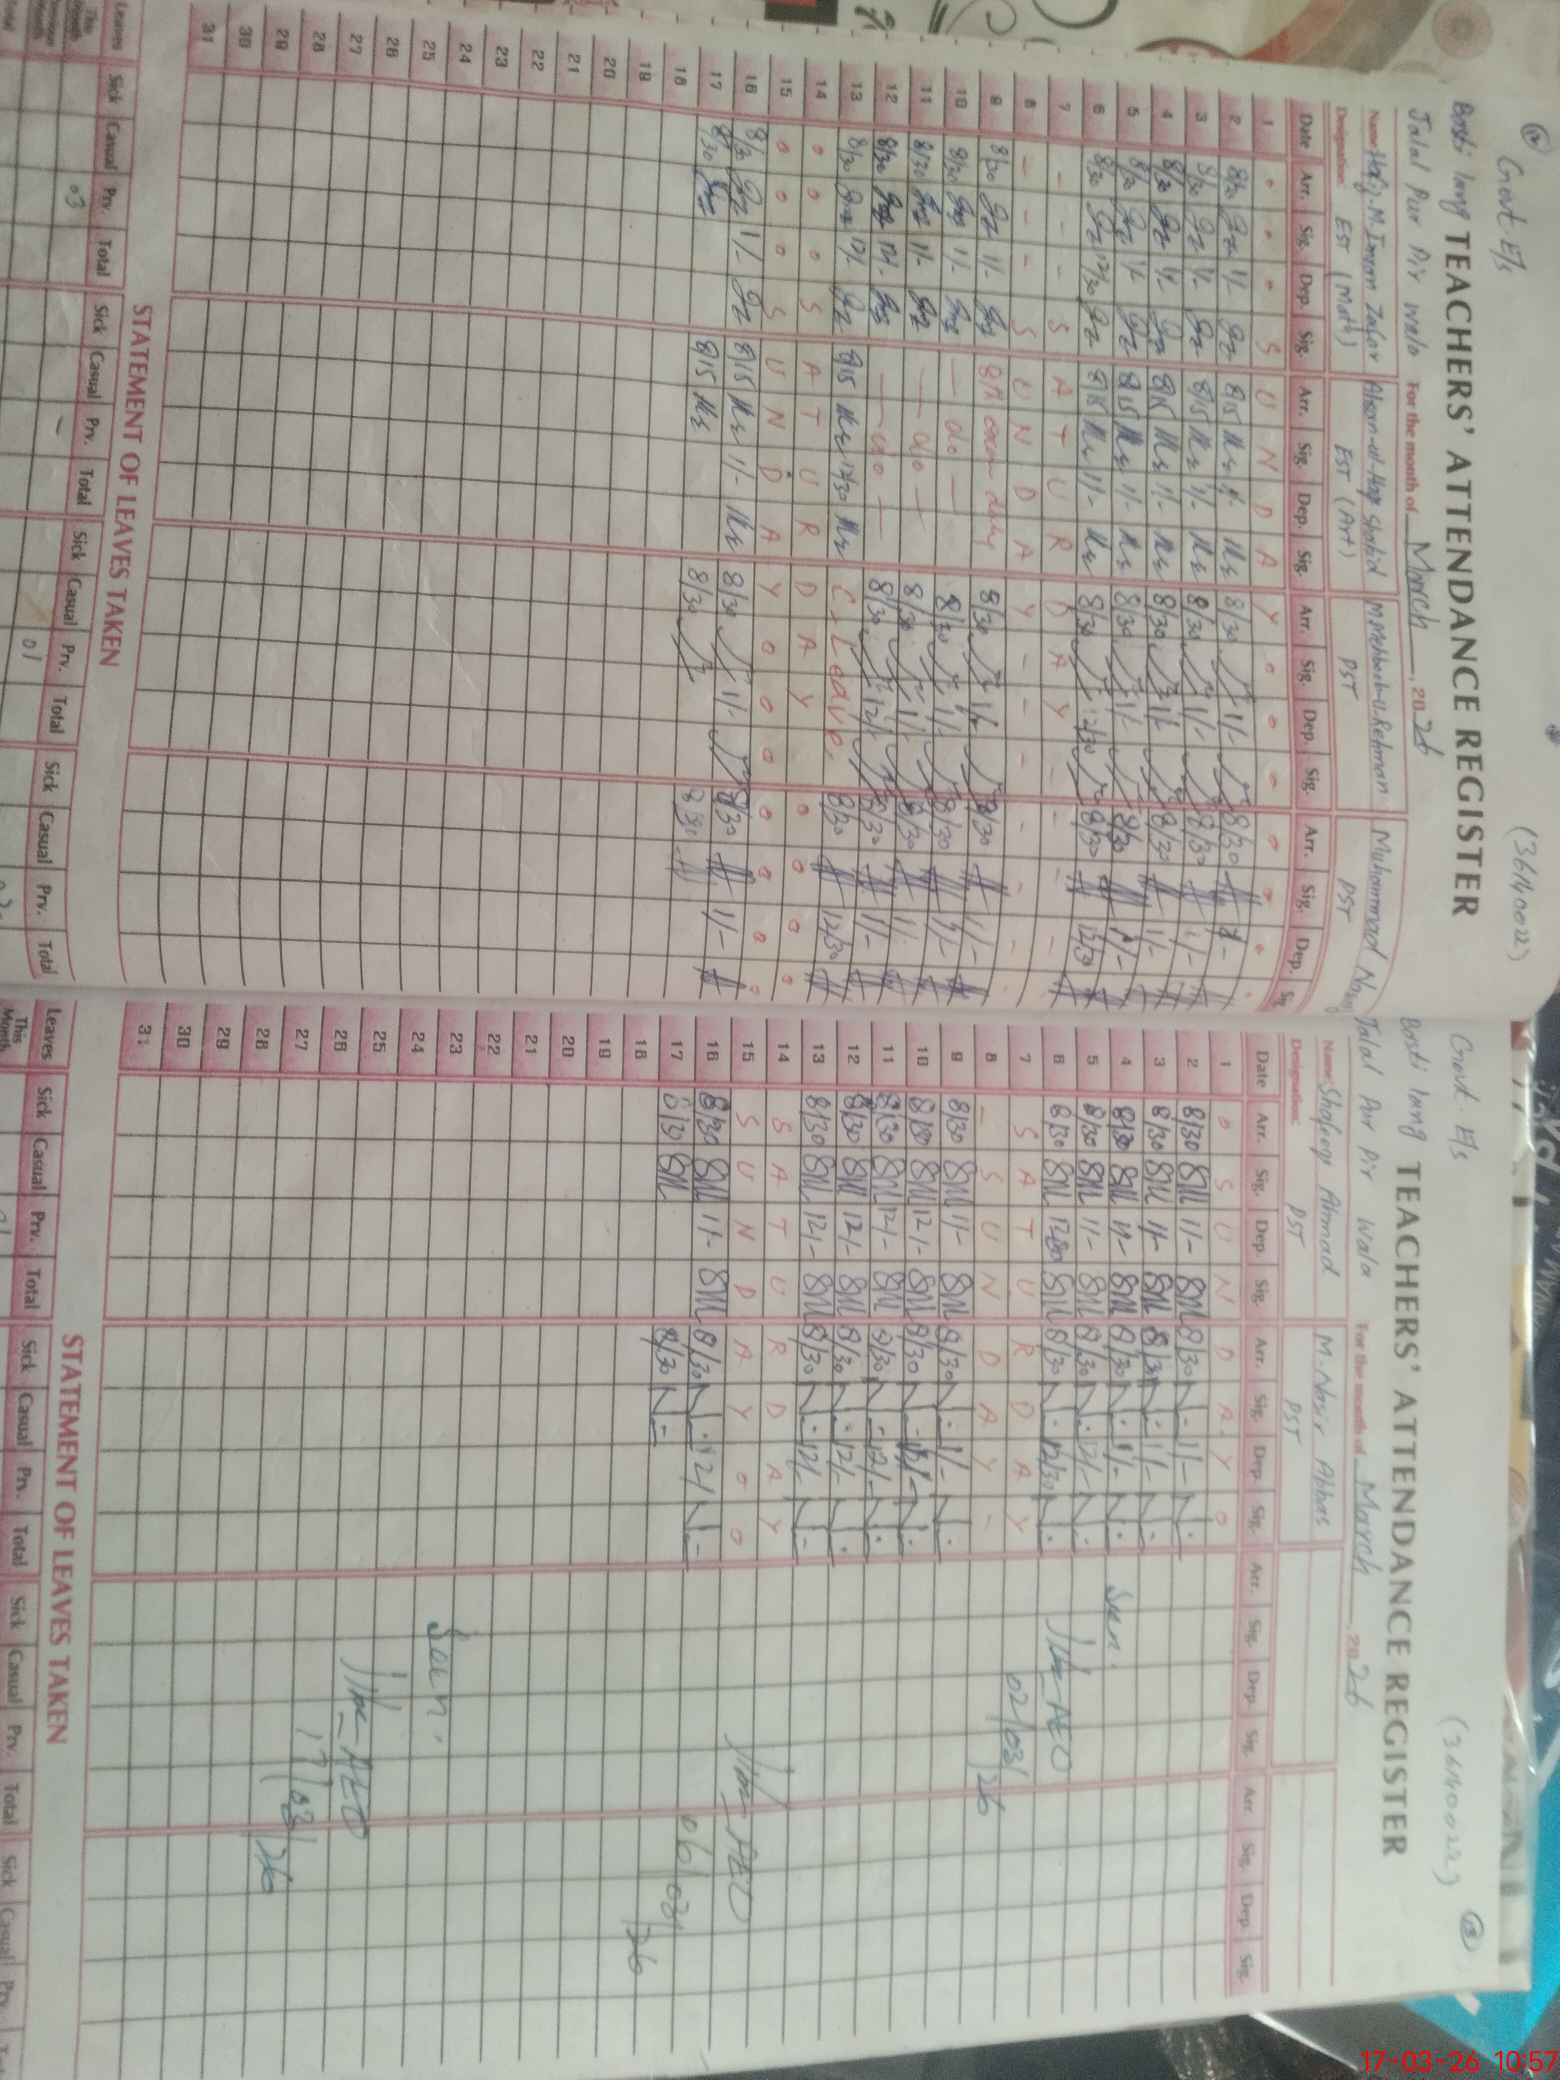 Govt. E/s
(36140022)
Basti lang TEACHERS' ATTENDANCE REGISTER
Jalal Pur Pir Wala For the month of March, 2026
Name Hafiz M. Imran Zafar Ahsan-ul-Haq Shahid M. Mehboob-u-Rehman Muhammad
Designation EST (Math) EST (Art) PST PST
Date Arr. Sig. Dep. Sig. Arr. Sig. Dep. Sig. Arr. Sig. Dep. Sig. Arr. Sig. Dep.
1 S U N D A Y
2 8/30 1/- 8/15 1/- 8/30 1/- 8/30 1/-
3 8/30 1/- 8/15 1/- 8/30 1/- 8/30 1/-
4 8/30 1/- 8/15 1/- 8/30 1/- 8/30 1/-
5 8/30 1/- 8/15 1/- 8/30 1/- 8/30 1/-
6 8/30 12/30 8/15 1/- 8/30 12/30 8/30 12/30
7 S A T U R D A Y
8 S U N D A Y
9 8/30 1/- 8th exam duty 8/30 1/- 8/30 1/-
10 8/30 1/- — do — 8/30 1/- 8/30 1/-
11 8/30 1/- — do — 8/30 1/- 8/30 1/-
12 8/30 12/- — do — 8/30 12/- 8/30 1/-
13 8/30 12/- 8/15 12/30 C. Leave 8/30 12/30
14 S A T U R D A Y
15 S U N D A Y
16 8/30 1/- 8/15 1/- 8/30 1/- 8/30 1/-
17 8/30 8/15 8/30 8/30
18
19
20
21
22
23
24
25
26
27
28
29
30
31
STATEMENT OF LEAVES TAKEN
Leaves Sick Casual Prv. Total Sick Casual Prv. Total Sick Casual Prv. Total Sick Casual Prv. Total
This Month 03 - 01
Govt. E/s
(36140022)
Basti lang TEACHERS' ATTENDANCE REGISTER
Jalal Pur Pir Wala For the month of March, 2026
Name Shafeeq Ahmad M. Nasir Abbas
Designation PST PST
Date Arr. Sig. Dep. Sig. Arr. Sig. Dep. Sig. Arr. Sig. Dep. Sig. Arr. Sig. Dep. Sig.
1 S U N D A Y
2 8/30 SM 1/- SM 8/30 N 1/- N
3 8/30 SM 1/- SM 8/30 N 1/- N
4 8/30 SM 1/- SM 8/30 N 1/- N Seen
5 8/30 SM 1/- SM 8/30 N 12/- N
6 8/30 SM SM 8/30 N 12/30 N AEO
7 S A T U R D A Y 02/03/26
8 S U N D A Y
9 8/30 SM 1/- SM 8/30 N 1/- N
10 8/30 SM 12/- SM 8/30 N 12/- N
11 8/30 SM 12/- SM 8/30 N 12/- N
12 8/30 SM 12/- SM 8/30 N 12/- N
13 8/30 SM 12/- SM 8/30 N 12/- N
14 S A T U R D A Y
15 S U N D A Y AEO
16 8/30 SM 1/- SM 8/30 N 12/ N 06/03/26
17 8/30 SM 8/30 N
18
19
20
21
22
23
24 Seen.
25
26 AEO
27 17/03/26
28
29
30
31
STATEMENT OF LEAVES TAKEN
Leaves Sick Casual Prv. Total Sick Casual Prv. Total Sick Casual Prv. Total Sick Casual Prv.
This Month
17-03-26 10:57